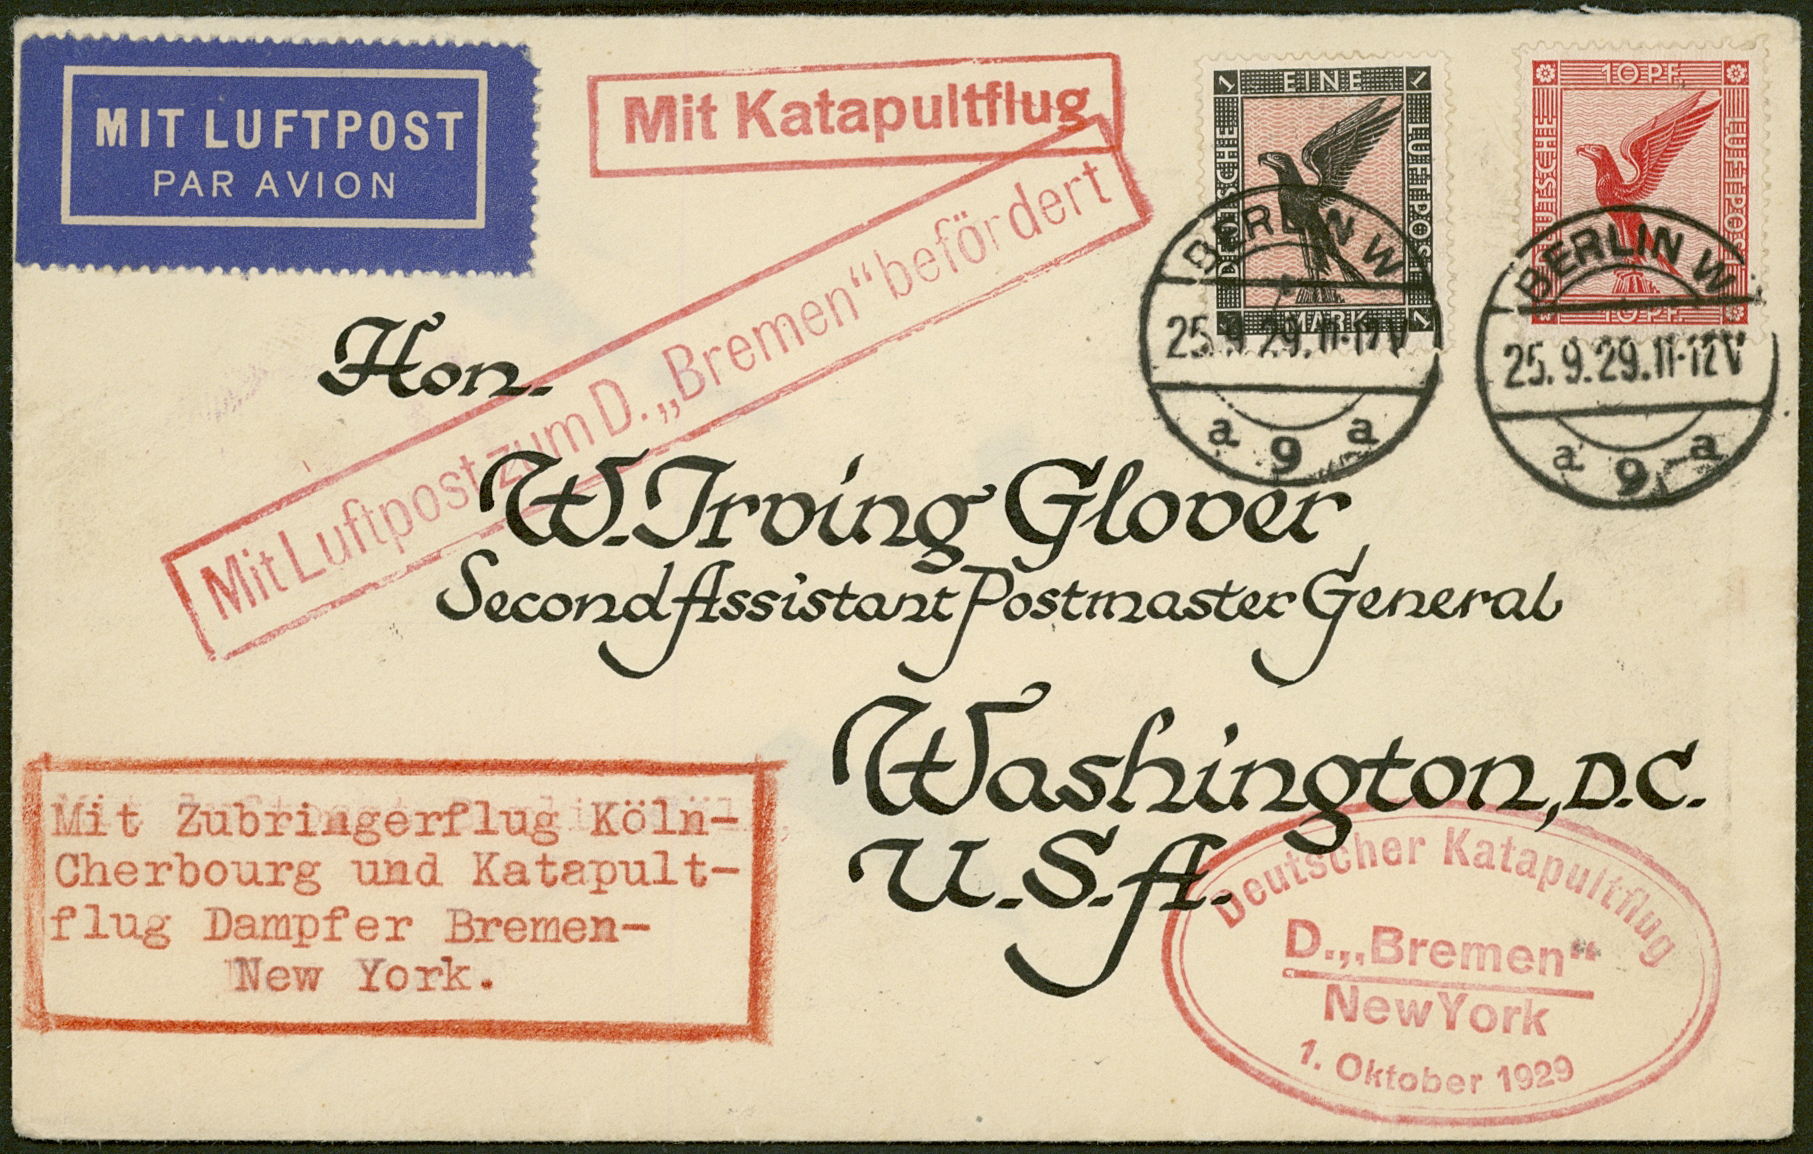 MIT LUFTPOST
PAR AVION
Mit Katapultflug
1 EINE 1
DEUTSCHE
LUFTPOST
MARK 1
10 PF.
DEUTSCHE
LUFTPOST
10 PF.
BERLIN W
25.9.29.11-12V
a 9 a
BERLIN W
25.9.29.11-12V
a 9 a
Mit Luftpost zum D. „Bremen“ befördert
Hon.
W. Irving Glover
Second Assistant Postmaster General
Washington, D.C.
U.S.A.
Mit Zubringerflug Köln-
Cherbourg und Katapult-
flug Dampfer Bremen-
New York.
Deutscher Katapultflug
D. „Bremen“
New York
1. Oktober 1929